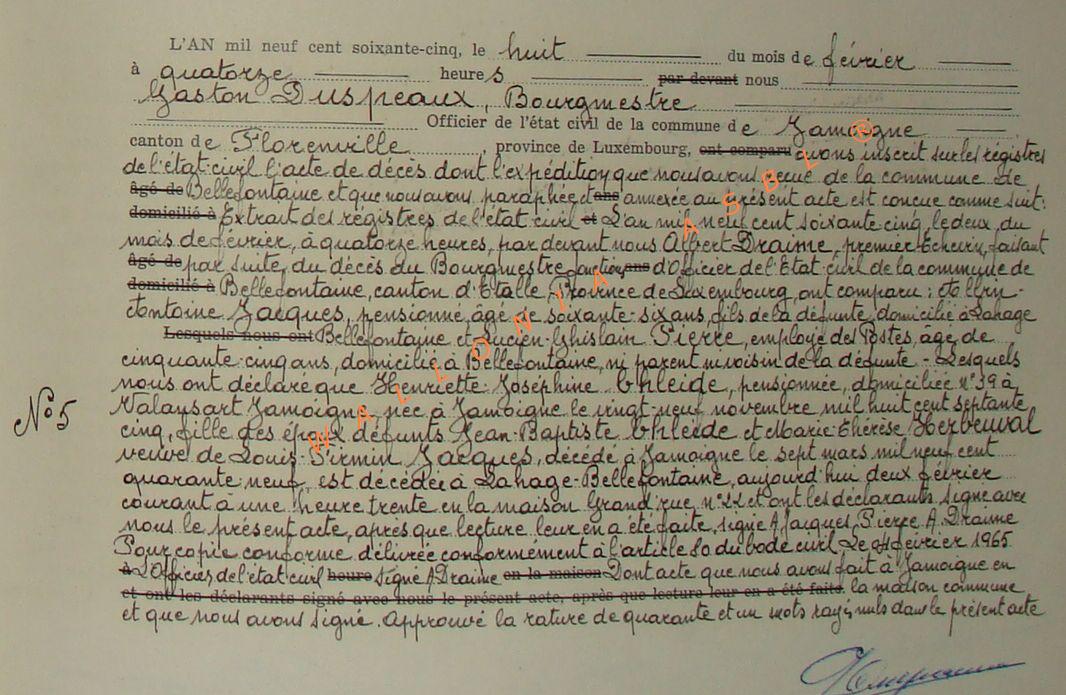 L'AN mil neuf cent soixante-cinq, le huit du mois de février
à quatorze heures par devant nous
Gaston Duspeaux, Bourgmestre
Officier de l'état civil de la commune de Jamoigne
canton de Florenville, province de Luxembourg, ont comparu avons inscrit sur les régistres
de l'état civil l'acte de décès dont l'expédition que nous avons recue de la commune de
âgé de Bellefontaine et que nous avons paraphée et ans annexée au présent acte est conçue comme suit:
domicilié à Extrait des régistres de l'état civil et L'an mil neuf cent soixante cinq, le deux, du
mois de février, à quatorze heures, par devant nous Albert Draime, premier Echevin, faisant
âgé de par suite, du décès du Bourgmestre fonctions ans d'Officier de l'Etat-civil de la commune de
domicilié à Bellefontaine, canton d'Etalle, Province de Luxembourg, ont comparu:
Antoine Jacques, pensionné, âgé de soixante-six ans, fils de la défunte, domicilié à Lahage
Lesquels nous ont Bellefontaine et Lucien-Ghislain Pierre, employé des Postes, âgé de
cinquante-cinq ans, domicilié à Bellefontaine, ni parent ni voisin de la défunte - Lesquels
nous ont déclaré que Henriette-Joséphine Thleide, pensionnée, domiciliée n° 39 à
Valansart Jamoigne, née à Jamoigne le vingt-neuf novembre mil huit cent septante
N° 5
cinq, fille des époux défunts Jean-Baptiste Thleide et Marie-Thérèse Herbeuval
veuve de Louis-Firmin Jacques, décédé à Jamoigne le sept mars mil neuf cent
quarante neuf, est décédée à Lahage-Bellefontaine, aujourd'hui deux février
courant à une heure trente en la maison Grand'rue, n° 22 et ont les déclarants signé avec
nous le présent acte, après que lecture leur en a été faite, signé A Jacques, Pierre, A. Draime
Pour copie conforme délivrée conformément à l'article 80 du Code civil Le février 1965
à L'Officier de l'état civil heure signé A Draime en la maison Dont acte que nous avons fait à Jamoigne en
et ont les déclarants signé avec nous le présent acte, après que lecture leur en a été faite. la maison commune
et que nous avons signé. Approuvé la rature de quarante et un mots rayés nuls dans le présent acte
WALLONIA ASBL ®